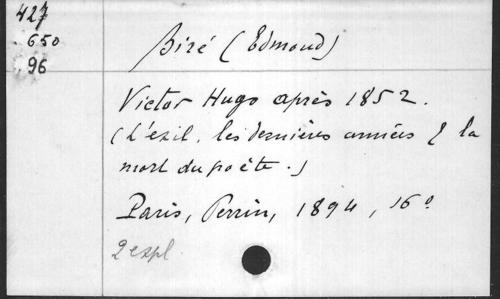 427
650
96
Biré (Edmond)
Victor Hugo après 1852.
(L'exil, les dernières années & la
mort du poète.)
Paris, Perrin, 1894, 16°
2 expl.